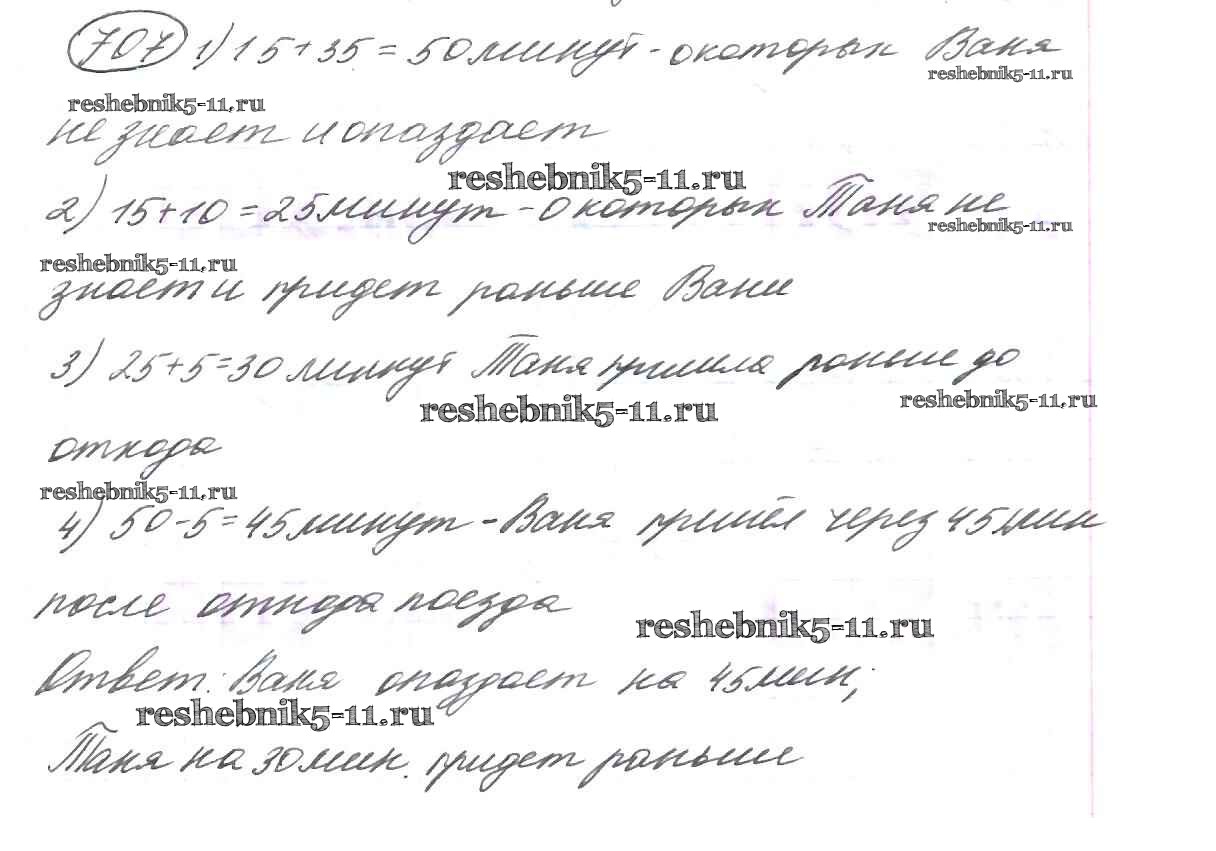 707 1) 15 + 35 = 50 минут - о которых Ваня
reshebnik5-11.ru
reshebnik5-11.ru
не знает и опаздает
reshebnik5-11.ru
2) 15 + 10 = 25 минут - о которых Таня не
reshebnik5-11.ru
reshebnik5-11.ru
знает и придет раньше Вани
3) 25 + 5 = 30 минут Таня пришла раньше до
reshebnik5-11.ru
reshebnik5-11.ru
отхода
reshebnik5-11.ru
4) 50 - 5 = 45 минут - Ваня пришёл через 45 мин
после отхода поезда
reshebnik5-11.ru
Ответ: Ваня опаздает на 45 мин;
reshebnik5-11.ru
Таня на 30 мин. придет раньше